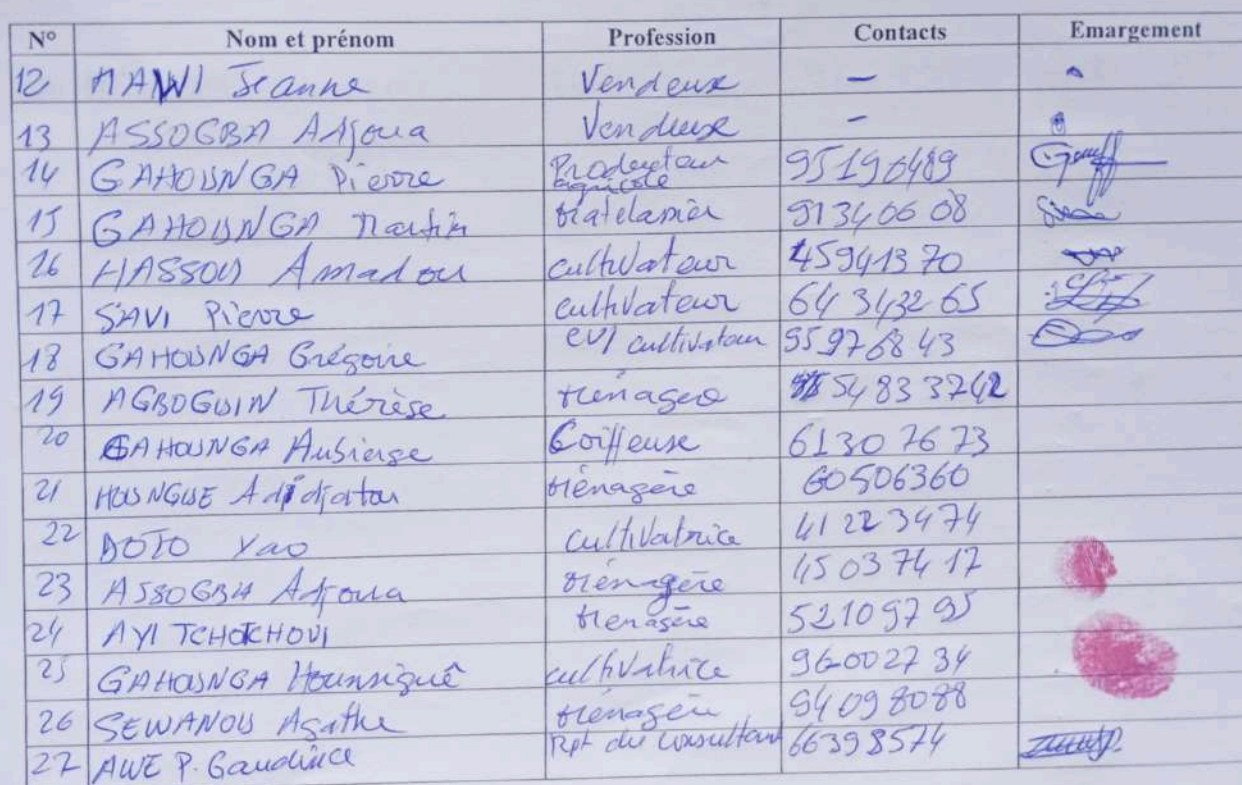 N° Nom et prénom Profession Contacts Emargement
12 MAWVI Jeanne Vendeuse –
13 ASSOGBA Adjoua Vendeuse –
14 GAHOUNGA Pierre Producteur agricole 95190489
15 GAHOUNGA Martin Matelassier 91340608
16 HASSOU Amadou cultivateur 45941370
17 SAVI Pierre cultivateur 64343265
18 GAHOUNGA Grégoire CV/ cultivateur 95976843
19 AGBOGUIN Thérèse Ménagère 54833742
20 GAHOUNGA Aubierge Coiffeuse 61307673
21 HOUNGUE Adidjatou Ménagère 60506360
22 DOTO Yao cultivatrice 41223474
23 ASSOGBA Adjoua Ménagère 45037417
24 AYI TCHOTCHOVI Ménagère 52109795
25 GAHOUNGA Hounsiguê cultivatrice 96002734
26 SEWANOU Agathe Ménagère 94098088
27 AWE P. Gaudince Rpt du consultant 66398574